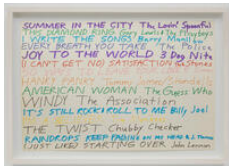 SUMMER IN THE CITY The Lovin' Spoonful
THIS DIAMOND RING Gary Lewis & The Playboys
I WRITE THE SONGS Barry Manilow
EVERY BREATH YOU TAKE The Police
JOY TO THE WORLD 3 Dog Nite
I CAN'T GET NO SATISFACTION
HANKY PANKY Tommy James/Shondells
AMERICAN WOMAN The Guess Who
WINDY The Association
IT'S STILL ROCK & ROLL TO ME Billy Joel
THE TWIST Chubby Checker
RAINDROPS KEEP FALLING ON MY HEAD B.J. Thomas
(JUST LIKE) STARTING OVER John Lennon